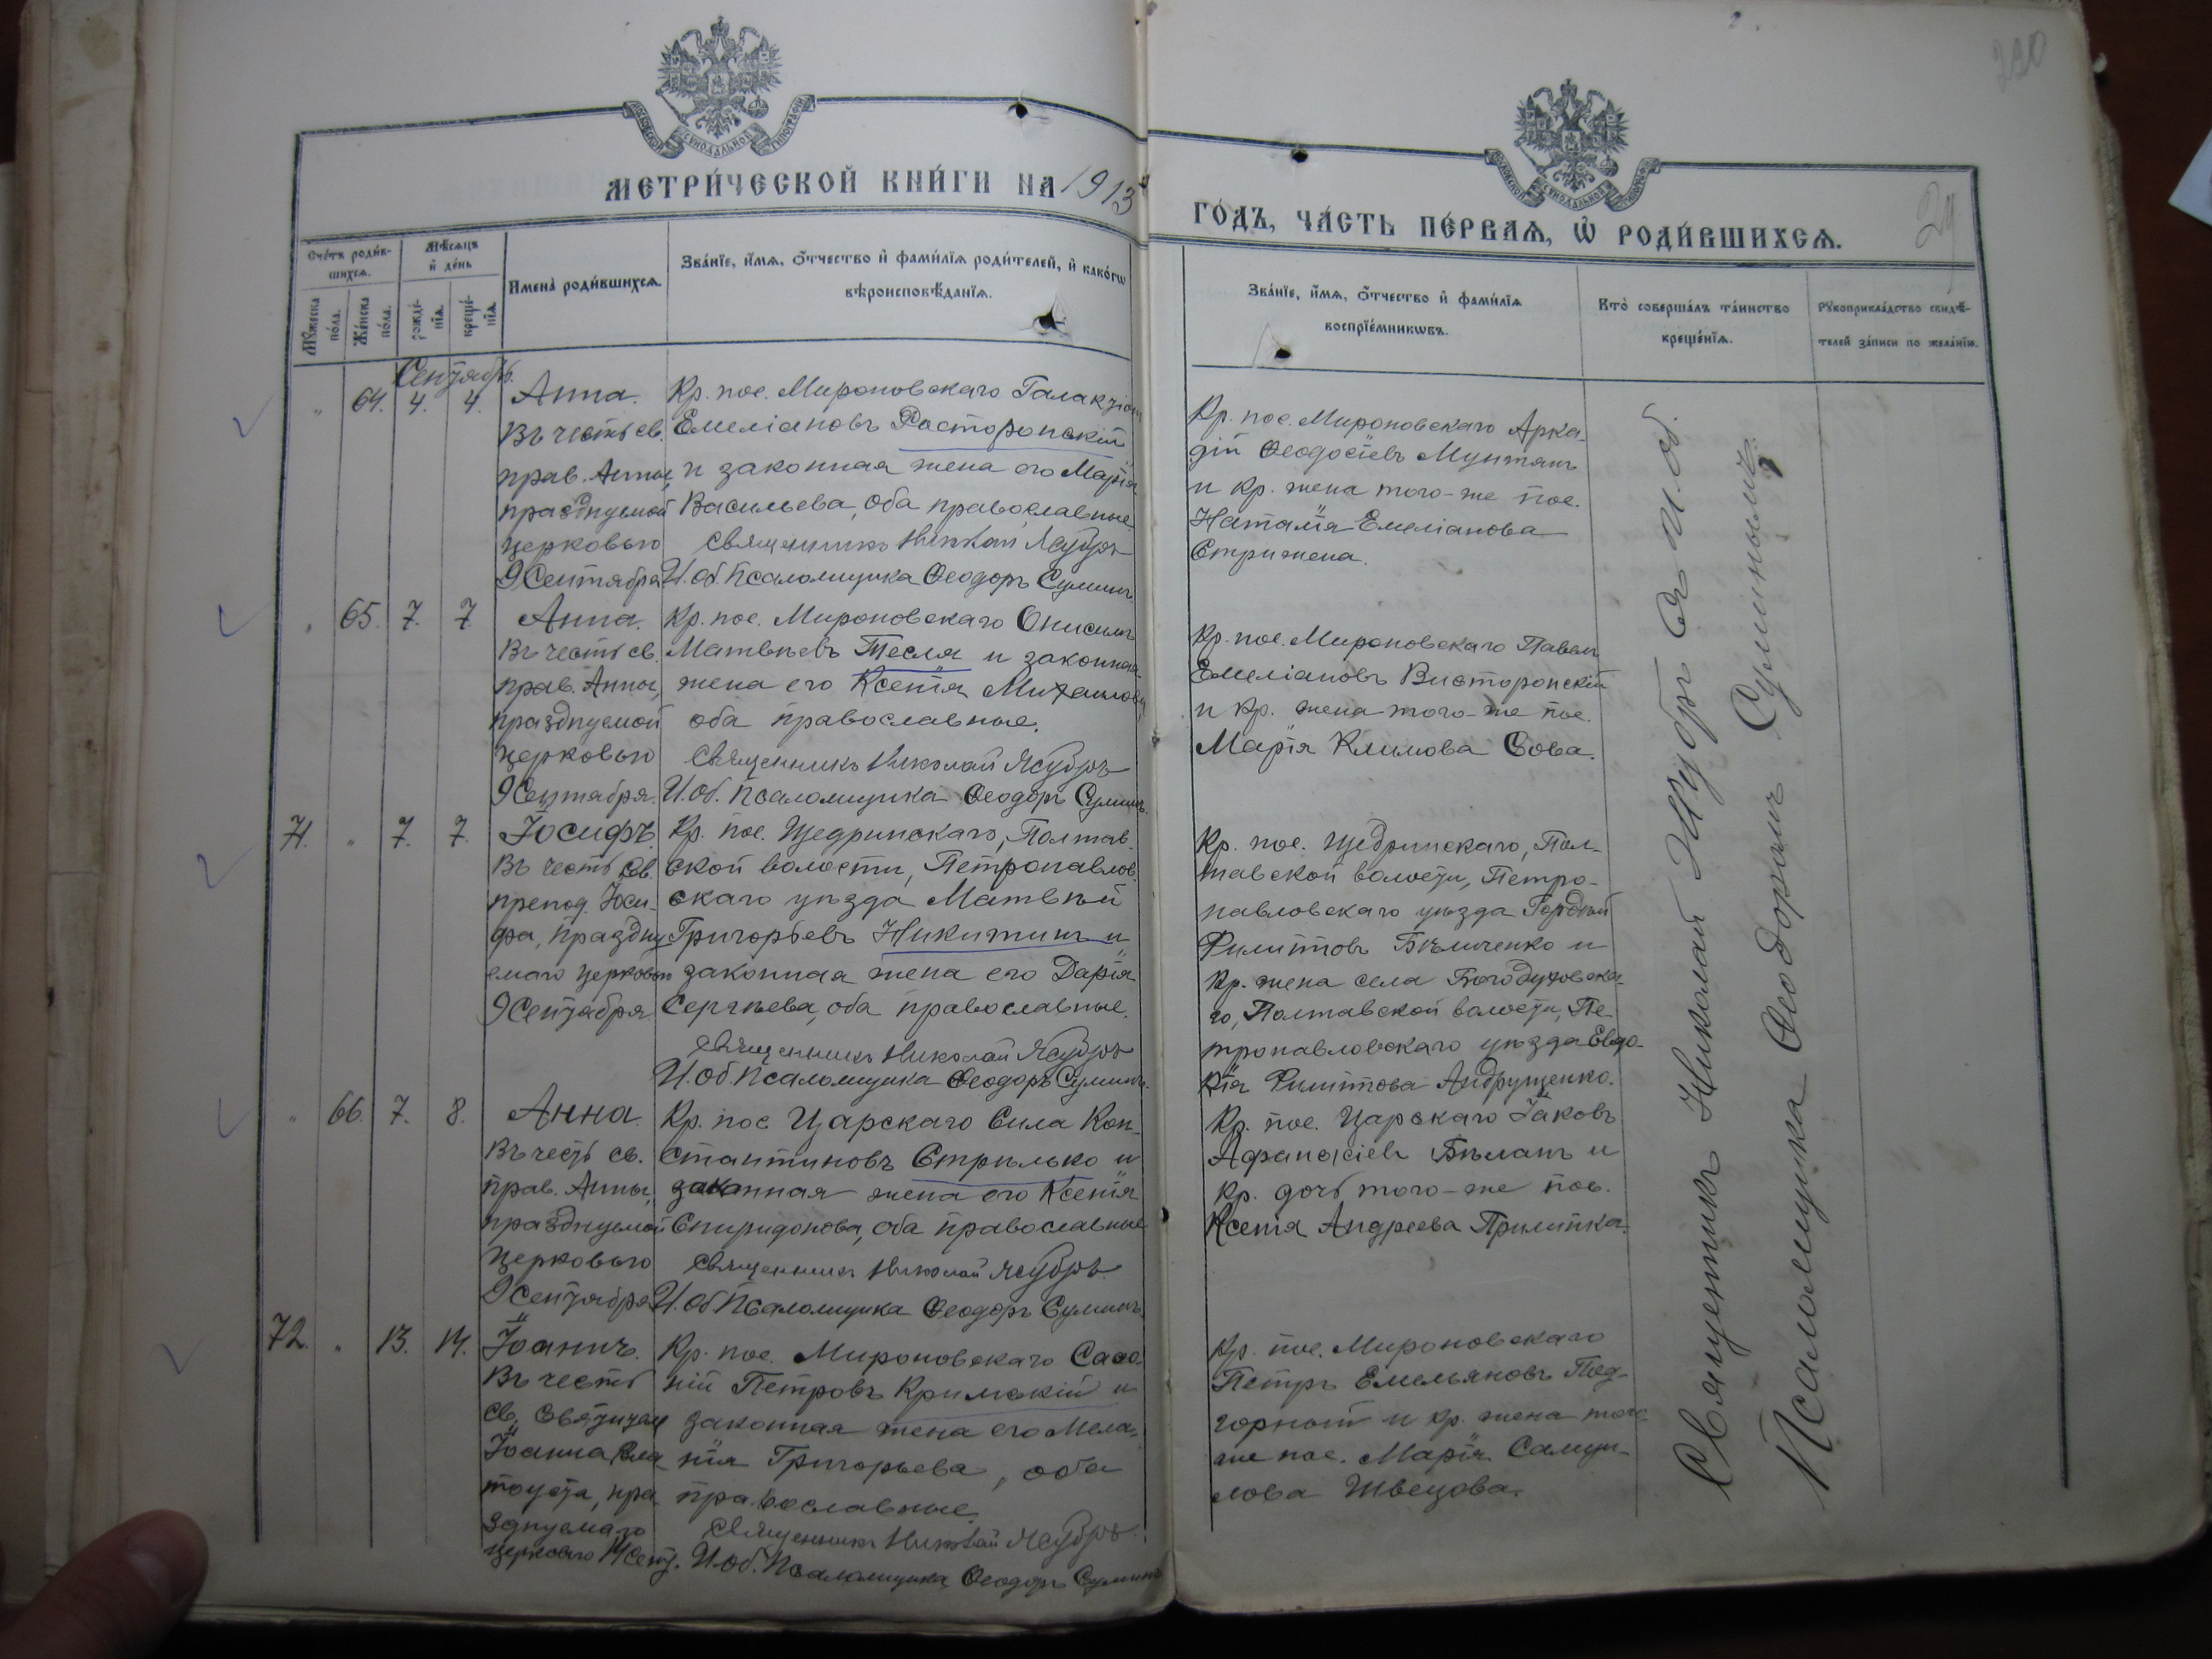 МЕТРИ́ЧЕСКОЙ КНИ́ГИ НА 1913
ГО́ДЪ, ЧА́СТЬ ПЕ́РВАѦ, Ѡ҆ РОДИ́ВШИХСѦ.
29
Сче́тъ роди́в-
шихсѧ.
Мѣ́сѧцъ
и҆ де́нь
Мꙋ́жеска по́ла.
Же́нска по́ла.
рожде́-
нїѧ.
креще́-
нїѧ.
И҆мена̀ роди́вшихсѧ.
Зва́нїе, и҆́мѧ, ѻ҆́тчество и҆ фами́лїѧ роди́телей, и҆ како́гѡ
вѣроисповѣ́данїѧ.
Зва́нїе, и҆́мѧ, ѻ҆́тчество и҆ фами́лїѧ
воспрїе́мникѡвъ.
Кто̀ соверша́лъ та́инство
креще́нїѧ.
Рꙋкоприкла́дство свидѣ́-
телей за́писи по жела́нїю.
Сентябрь.
" 64. 4. 4.
Анна.
Въ честь св.
прав. Анны,
празднуемой
церковью
9 Сентября
Кр. пос. Мироновскаго
Емеліановъ
и законная жена его Марія
Васильева, оба православные
Священникъ Николай
И. об. Псаломщика Ѳеодоръ Сулимъ.
Кр. пос. Мироновскаго Арка-
дій Ѳеодосіевъ Мунтянъ
и кр. жена того-же пос.
Наталія Емеліанова
Стрижена.
" 65. 7. 7.
Анна.
Въ честь св.
прав. Анны,
празднуемой
церковью
9 Сентября.
Кр. пос. Мироновскаго Онисимъ
Матвѣевъ Тесля и законная
жена его Ксенія Михаилова,
оба православные.
Священникъ Николай
И. об. Псаломщика Ѳеодоръ Сулимъ.
Кр. пос. Мироновскаго Павелъ
Емеліановъ Висторопскій
и кр. жена того-же пос.
Марія Климова Сова.
71. " 7. 7.
Іосифъ.
Въ честь св.
препод. Іоси-
фа, праздну
емаго церковью
9 Сентября
Кр. пос. Щедринскаго, Полтав-
ской волости, Петропавлов-
скаго уѣзда Матвѣй
Григорьевъ Никитинъ и
законная жена его Дарія
Сергѣева, оба православные.
Священникъ Николай
И. об. Псаломщика Ѳеодоръ Сулимъ.
Кр. пос. Щедринскаго, Пол-
тавской волости, Петро-
павловскаго уѣзда Гордѣй
Филипповъ Бѣличенко и
кр. жена села Богодуховска-
го, Полтавской волости, Пе-
тропавловскаго уѣзда Евдо-
кія Филиппова Андрущенко.
" 66. 7. 8.
Анна.
Въ честь св.
прав. Анны,
празднуемой
церковью
9 Сентября
Кр. пос. Царскаго Сила Кон-
стантиновъ Стрилько и
законная жена его Ксенія
Спиридонова, оба православные
Священникъ Николай
И. об Псаломщика Ѳеодоръ Сулимъ.
Кр. пос. Царскаго Іаковъ
Аѳанасіевъ Бѣланъ и
кр. дочь того-же пос.
Ксенія Андреева Прилипка.
72. " 13. 14.
Іоаннъ.
Въ честь
св. Святителя
Іоанна Зла
тоуста, пра
зднуемаго
церковью 14 Сент.
Кр. пос. Мироновскаго
ній Петровъ Кримскій и
законная жена его Мела-
нія Григорьева, оба
православные.
Священникъ Николай
И. об. Псаломщика Ѳеодоръ Сулимъ
Кр. пос. Мироновскаго
Петръ Емельяновъ Под-
горный и кр. жена того-
же пос. Марія Самуи-
лова Швецова.
Священникъ Николай
Псаломщика Ѳеодоромъ Сулимнымъ.